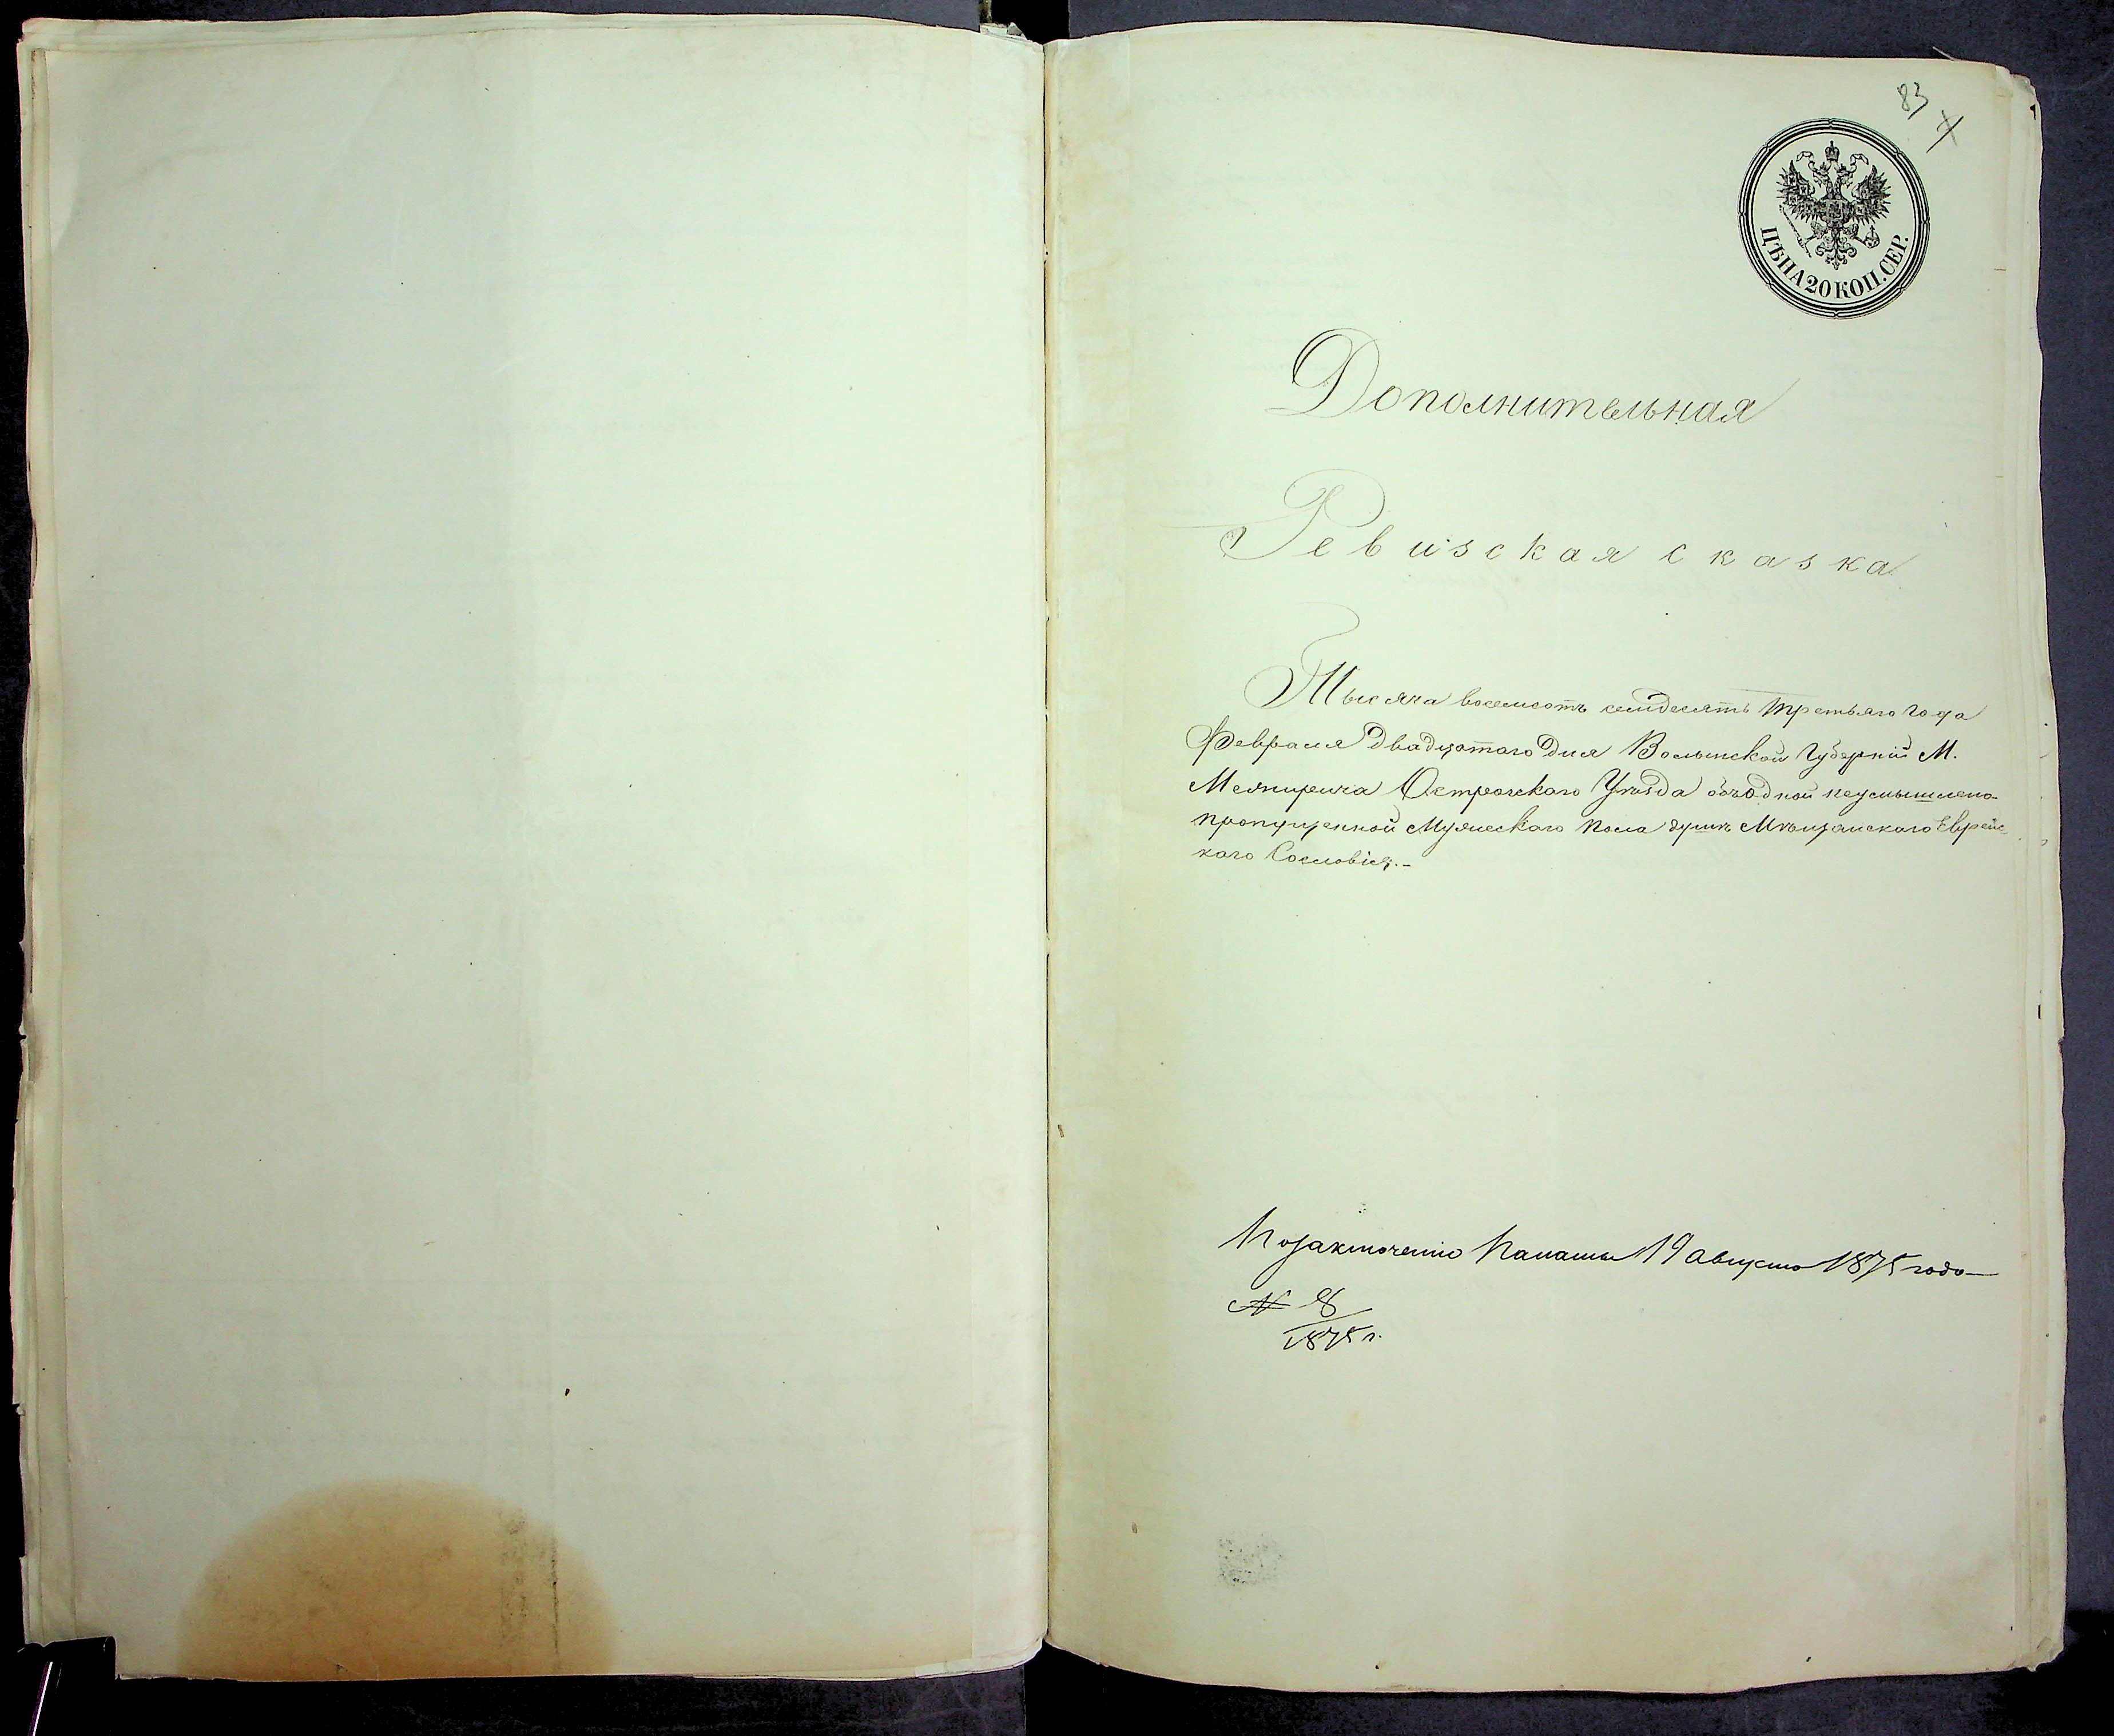 83
4
ЦѢНА 20 КОП. СЕР.
Дополнительная
Ревизская сказка
Тысяча восемсотъ семдесятъ третьяго года
Февраля двадцатого дня Волынской Губерніи М.
Межирича Острожского Уѣзда объ одной неумышлено
пропущенной Мужеского пола душѣ Мѣщанского Еврейс
кого Сословія.-
По заключенію Палаты 19 Августа 1875 года
№ 8
1875 г.